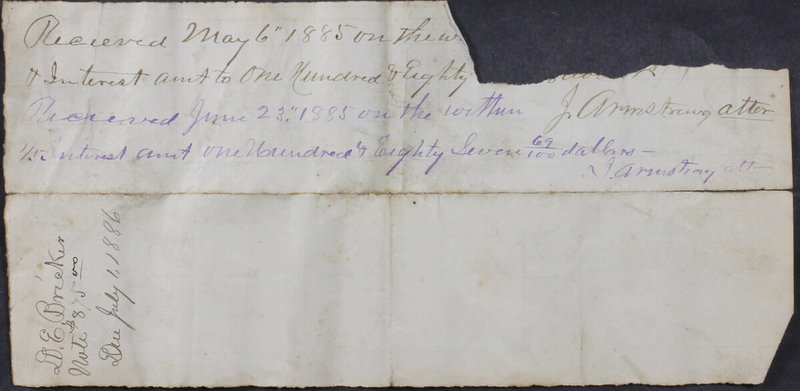 Recieved May 6" 1885 on the w
& Interest amt to One Hundred & Eighty
J. Armstrong atter
Recieved June 23." 1885 on the within
1/5 Interest amt one Hundred & Eighty Seven 69/100 dollars —
J. Armstrong atter
D. E. Bricker
Note $875.00
Due July 1, 1886